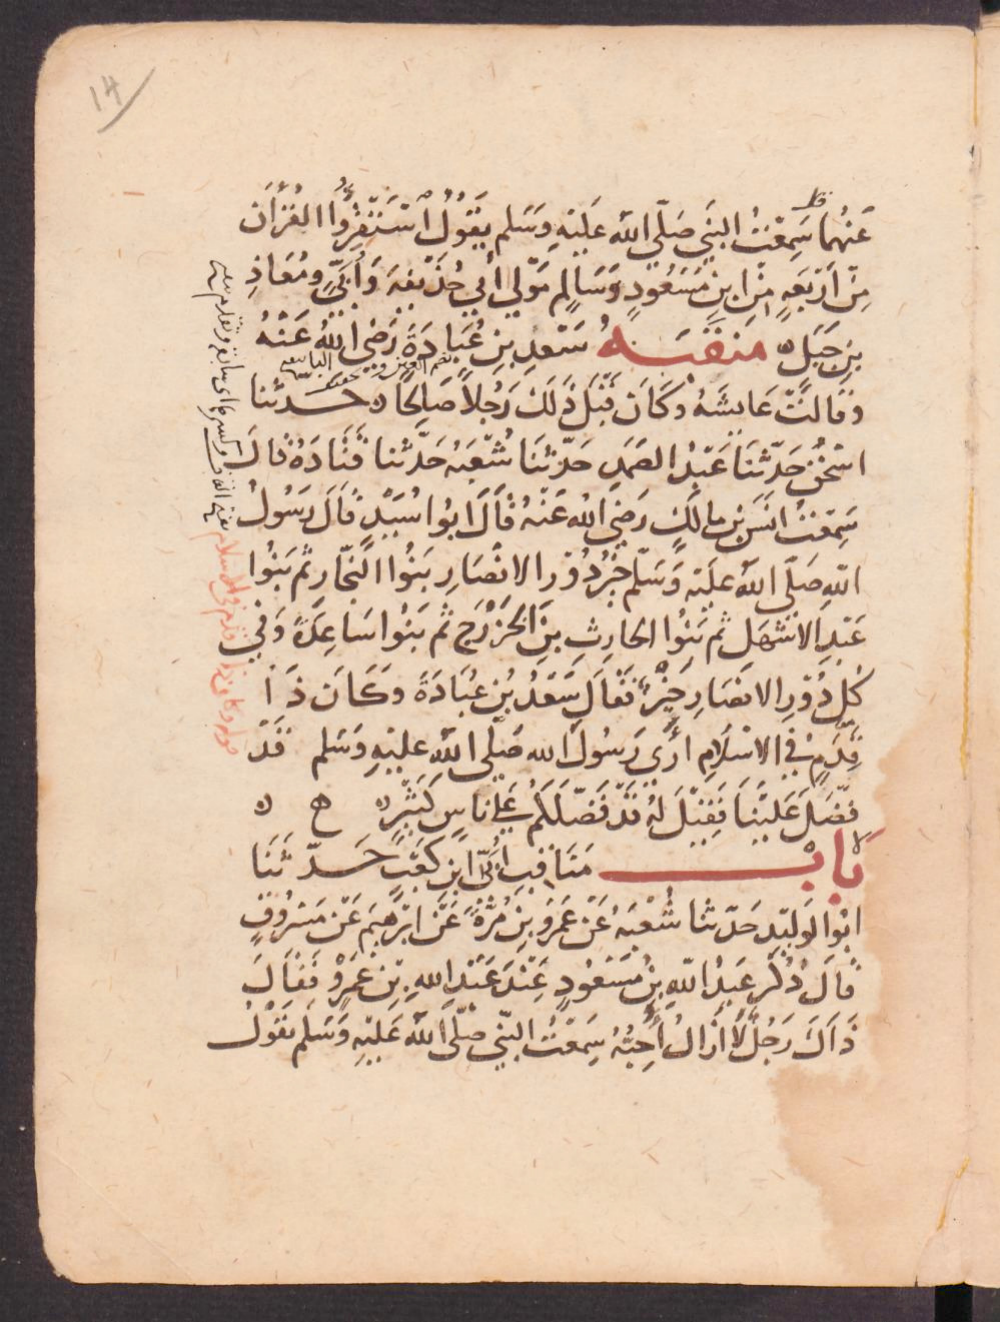 14
عَنْهُما سَمِعْتُ النبَي صَلّي الله عَلَيْهِ وَسَلم يَقُولُ اسْتَقْرِؤُا القُرْأَن
مِنْ أَرْبَعَةٍ مِنْ ابنِ مَسْعُودٍ وَسَالِم مَوْلي أبي حُذَيْفَةَ وَأُبَيٍّ ومُعَاذِ
بنِ جَبَلٍ منقبَة سَعْدِ بنِ عُبَادَةَ رَضِي اللهُ عَنْهُ
وقَالتْ عَايشَةُ وكَانَ قَبْلَ ذَلكَ رَجُلاً صَالحًا حَدثنا
اسْحٰقُ حَدّثنَا عَبْدُ الصّمَدِ حَدّثنَا شُعْبَةُ حَدّثنا قَتَادَةُ قالَ
سَمِعْتُ انَسَ بنَ مالكٍ رَضِي الله عَنْهُ قَالَ ابُوا سُيْدٍ قَالَ رَسُولُ
اللهِ صَلّى اللهُ علَيْه وَسَلّم خَيْرُ دُوْرِ الانْصَارِ بَنُوا النجّارِ ثم بَنُوا
عَبْدِ الاشْهَلِ ثم بَنُوا الحارِثِ بنِ الخَزْرَجِ ثم بَنُوا سَاعِدَةَ وَفي
كُلِ دُوْرِ الانصَارِ خَيْرٌ فَقَالَ سَعْدُ بْنُ عُبَادَةَ وكَانَ ذَا
قِدَمٍ في الاسْلَامِ أَرَى رَسُولَ الله صَلّى اللهُ عليْهِ وَسَلم قَدْ
فضّلَ عَلَيْنَا فَقِيْلَ لهُ قَدْ فَضّلَكُمْ عَلى نَاسٍ كَثيْرٍ ه ح ه
بَابُ مَنَاقِب ابَيّ ابنِ كَعْبٍ حَدّثنَا
ابُوا الوَليْدِ حَدّثنا شُعْبَةُ عَنْ عَمْرِو بنِ مُرّةَ عَنْ ابْرٰهِيمَ عَنْ مَسْرُوقٍ
قالَ ذُكِرَ عَبْدُ اللهِ بنُ مَسْعُودٍ عِنْدَ عَبْدِ اللهِ بنِ عَمْرٍو فَقَالَ
ذَاكَ رَجُلٌ لَا أزَالُ أُحِبُّهُ سَمِعْتُ النبّي صَلّى اللهُ عَلَيْهِ وَسَلم يَقُولُ